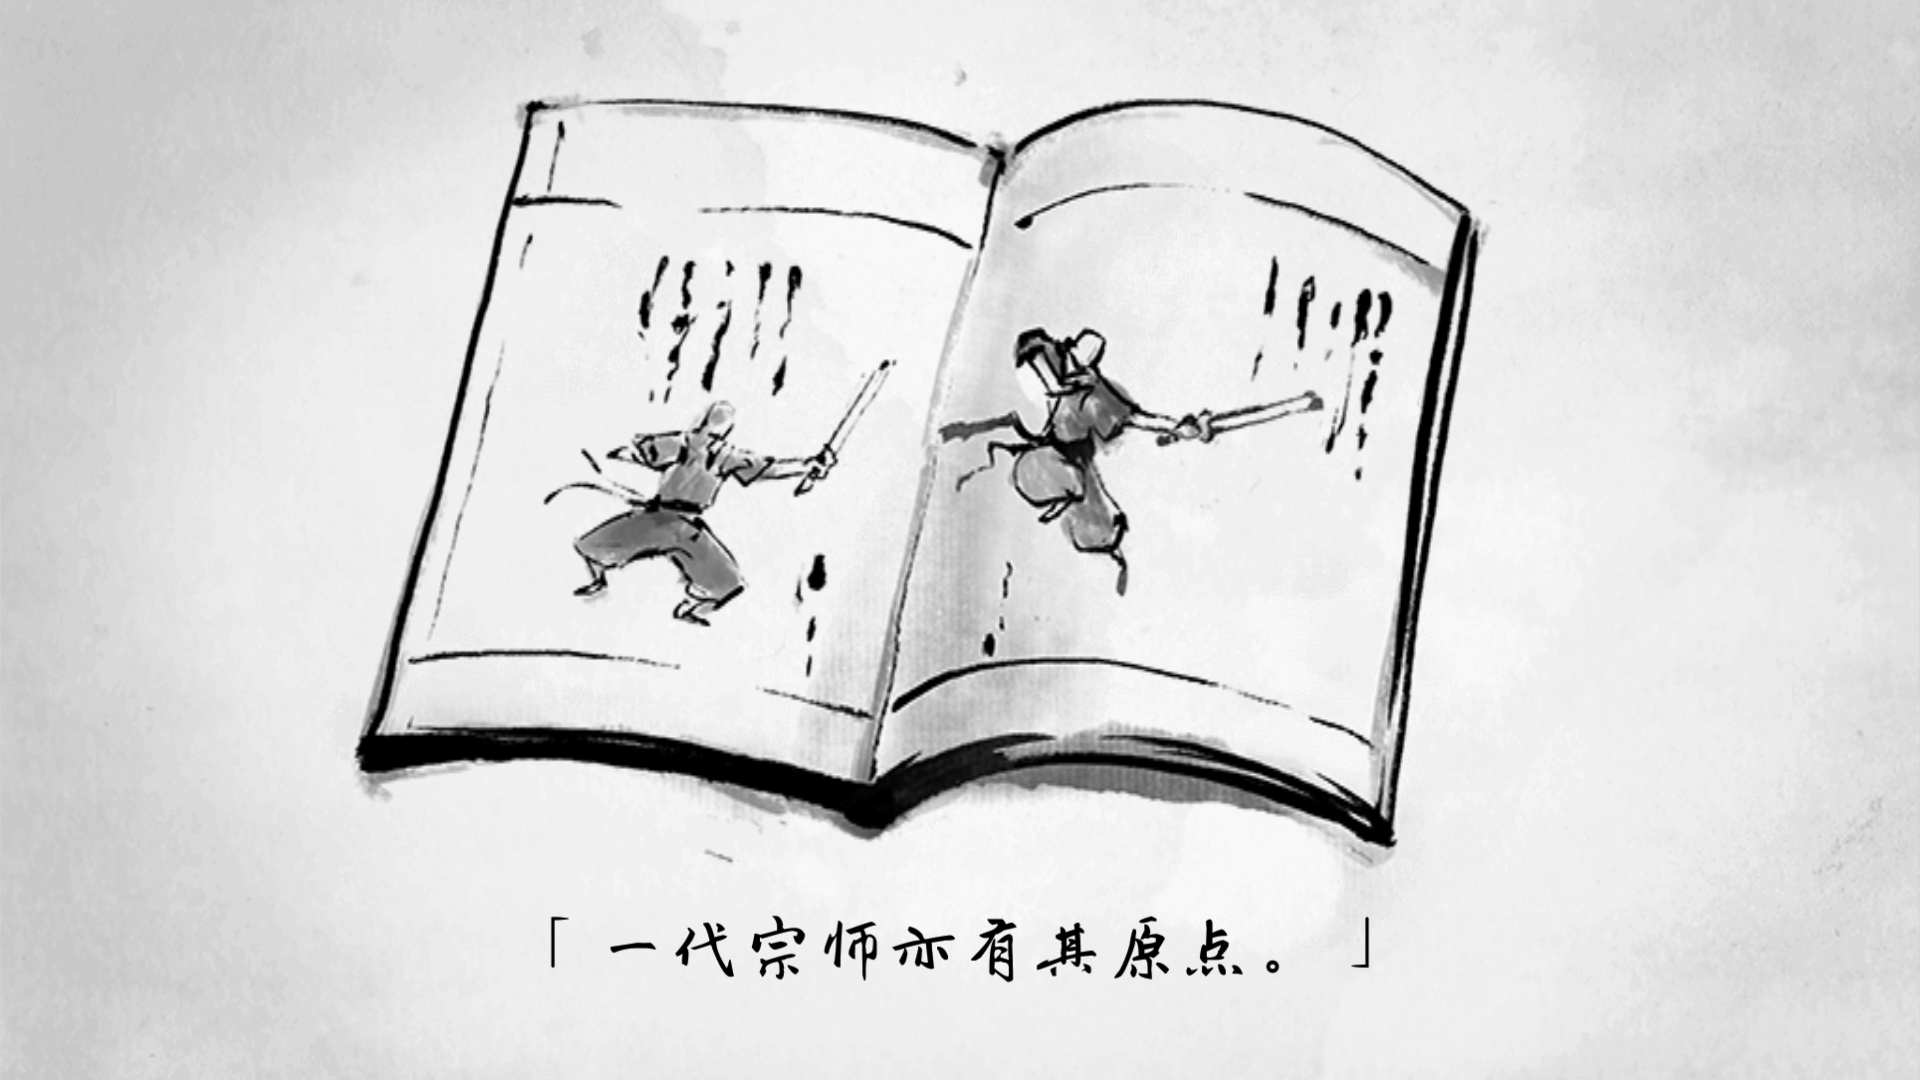 「一代宗师亦有其原点。」